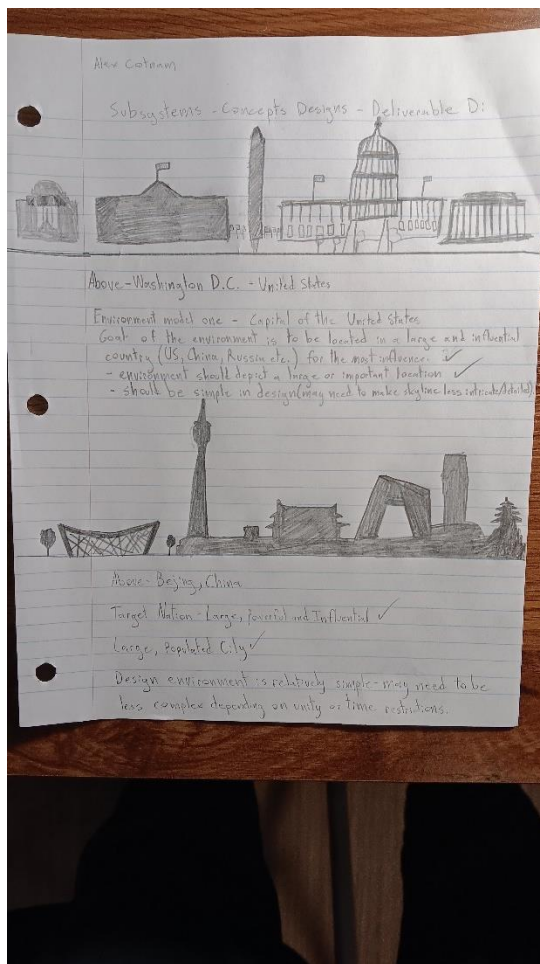 Alex Cotnam
Subsystems - Concepts Designs - Deliverable D:
Above - Washington D.C. - United States
Environment model one - Capital of the United States
Goal of the environment is to be located in a large and influential
country (US, China, Russia etc.) for the most influence. ✓
- environment should depict a large or important location ✓
- should be simple in design (may need to make skyline less intricate/detailed)
Above - Bejing, China
Target Nation - Large, Powerful and Influential ✓
Large, Populated City ✓
Design environment is relatively simple - may need to be
less complex depending on unity or time restrictions.